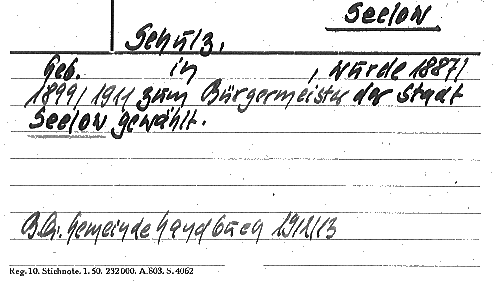 Seelow
Schulz,
Geb. in , wurde 1887/
1899/1911 zum Bürgermeister der Stadt
Seelow gewählt.
Gemeindehandbuch 1912/13
Reg. 10. Stichnote. 1. 50. 232000. A.803. S. 4062